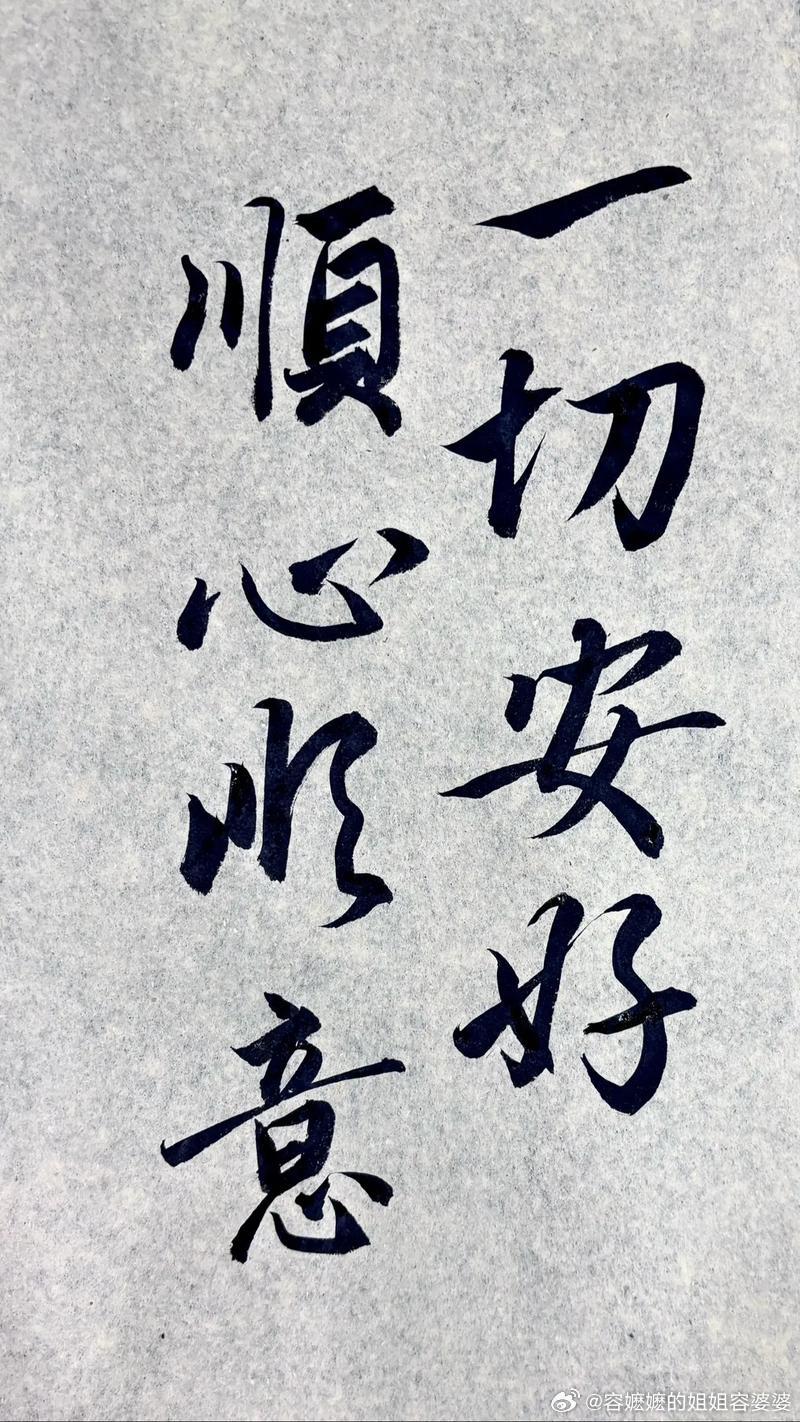 一切安好
順心順意
@容嬷嬷的姐姐容婆婆